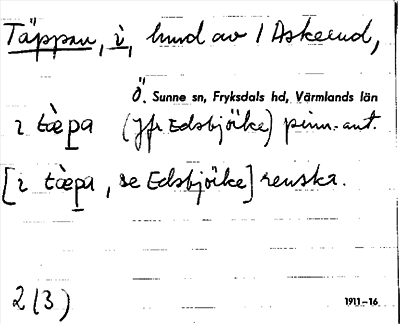 Täppan, i, hmd av 1 Askerud,
Ö. Sunne sn, Fryksdals hd, Värmlands län
ɩ tæ̀pa (jfr Edsbjörke) pinn. ant.
[ɩ tæ̀pa, se Edsbjörke] renskr.
2(3)
1911-16